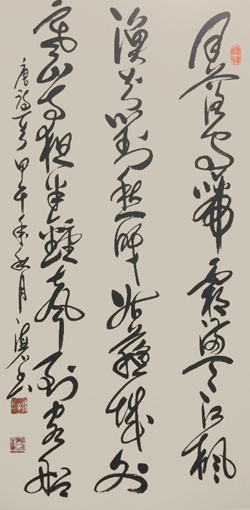 月落乌啼霜满天江枫
渔火对愁眠姑苏城外
寒山寺夜半钟声到客船
唐诗一首甲午年秋月